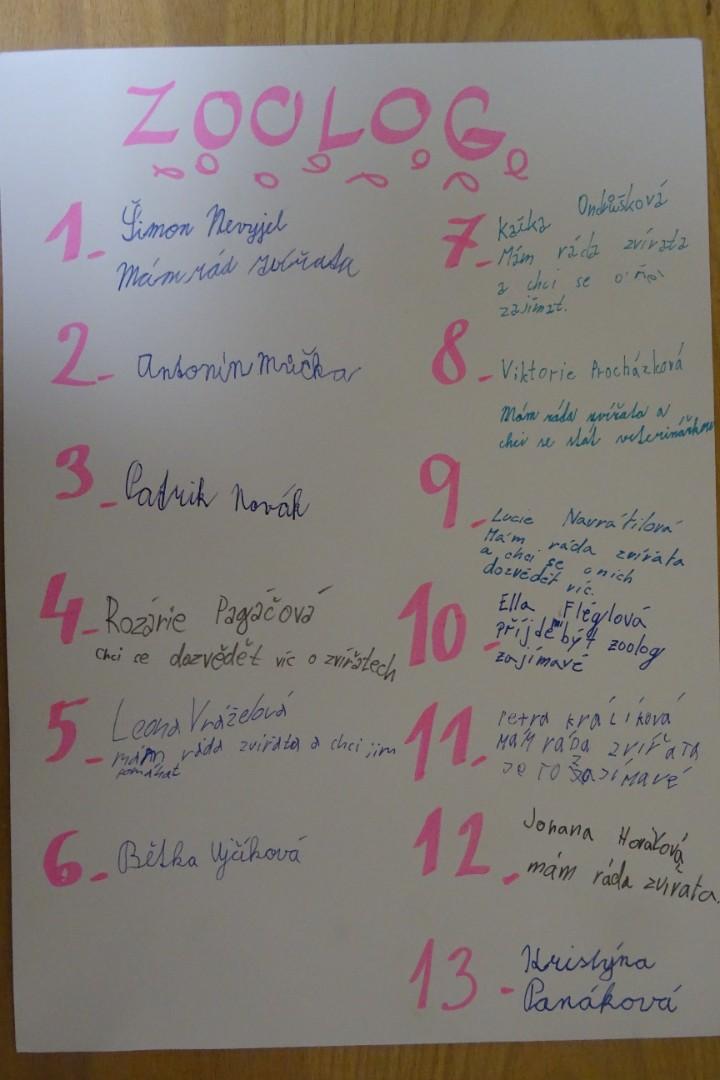 ZOOLOG
1- Šimon Nevyjel
Mám rád zvířata
2- Antonín Mička
3- Patrik Novák
4- Rozárie Pagáčová
Chci se dozvědět víc o zvířatech
5- Leona Vraželová
mám ráda zvířata a chci jim
pomáhat
6- Bětka Vyčíková
7- Kaťka Ondrůšková
Mám ráda zvířata
a chci se o
zajímat.
8- Viktorie Procházková
Mám ráda zvířata a
chci se stát veterinářkou
9- Lucie Navrátilová
Mám ráda zvířata
a chci se o nich
dozvědět víc.
10- Ella Fléglová
příjde mi být zoolog
zajímavé
11- Petra KRÁLÍKOVÁ
MÁM RÁDA ZVÍŘATA
JE TO ZAJÍMAVÉ
12- Johana Horáková
mám ráda zvířata.
13- Kristýna
Panáková